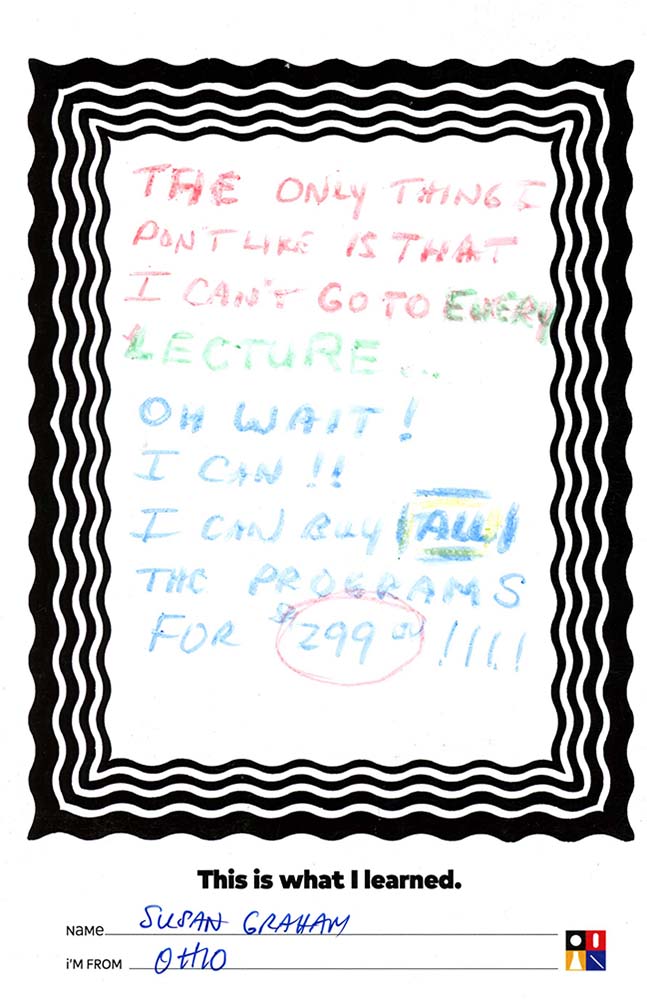 THE ONLY THING I
DON'T LIKE IS THAT
I CAN'T GO TO EVERY
LECTURE...
OH WAIT!
I CAN!!
I CAN BUY ALL
THE PROGRAMS
FOR $299.00!!!!
This is what I learned.
NAME SUSAN GRAHAM
i'M FROM OHIO